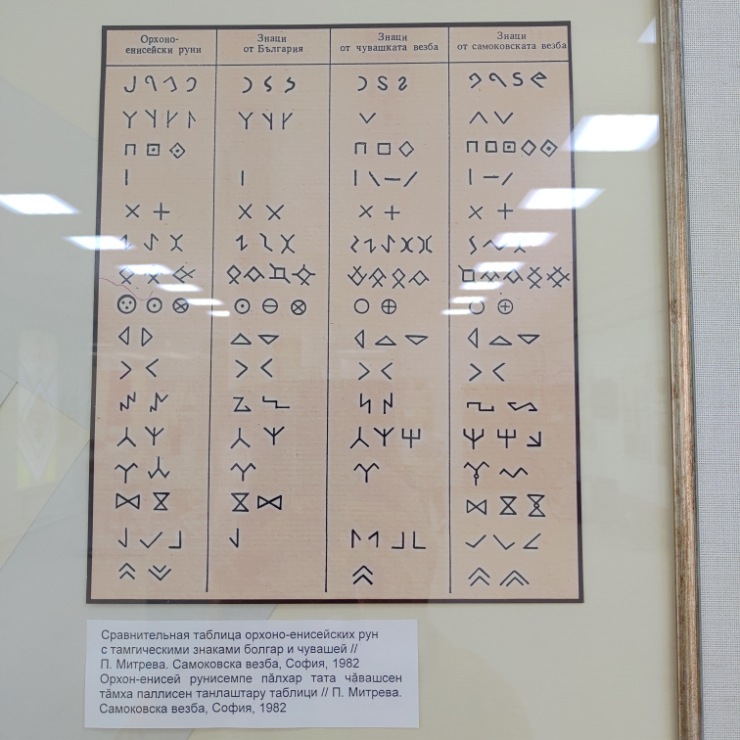 Орхоно-
енисейски руни
Знаци
от България
Знаци
от чувашката везба
Знаци
от самоковската везба
Сравнительная таблица орхоно-енисейских рун
с тамгическими знаками болгар и чувашей //
П. Митрева. Самоковска везба, София, 1982
Орхон-енисей рунисемпе пӑлхар тата чӑвашсен
тӑмха паллисен танлаштару таблици // П. Митрева.
Самоковска везба, София, 1982